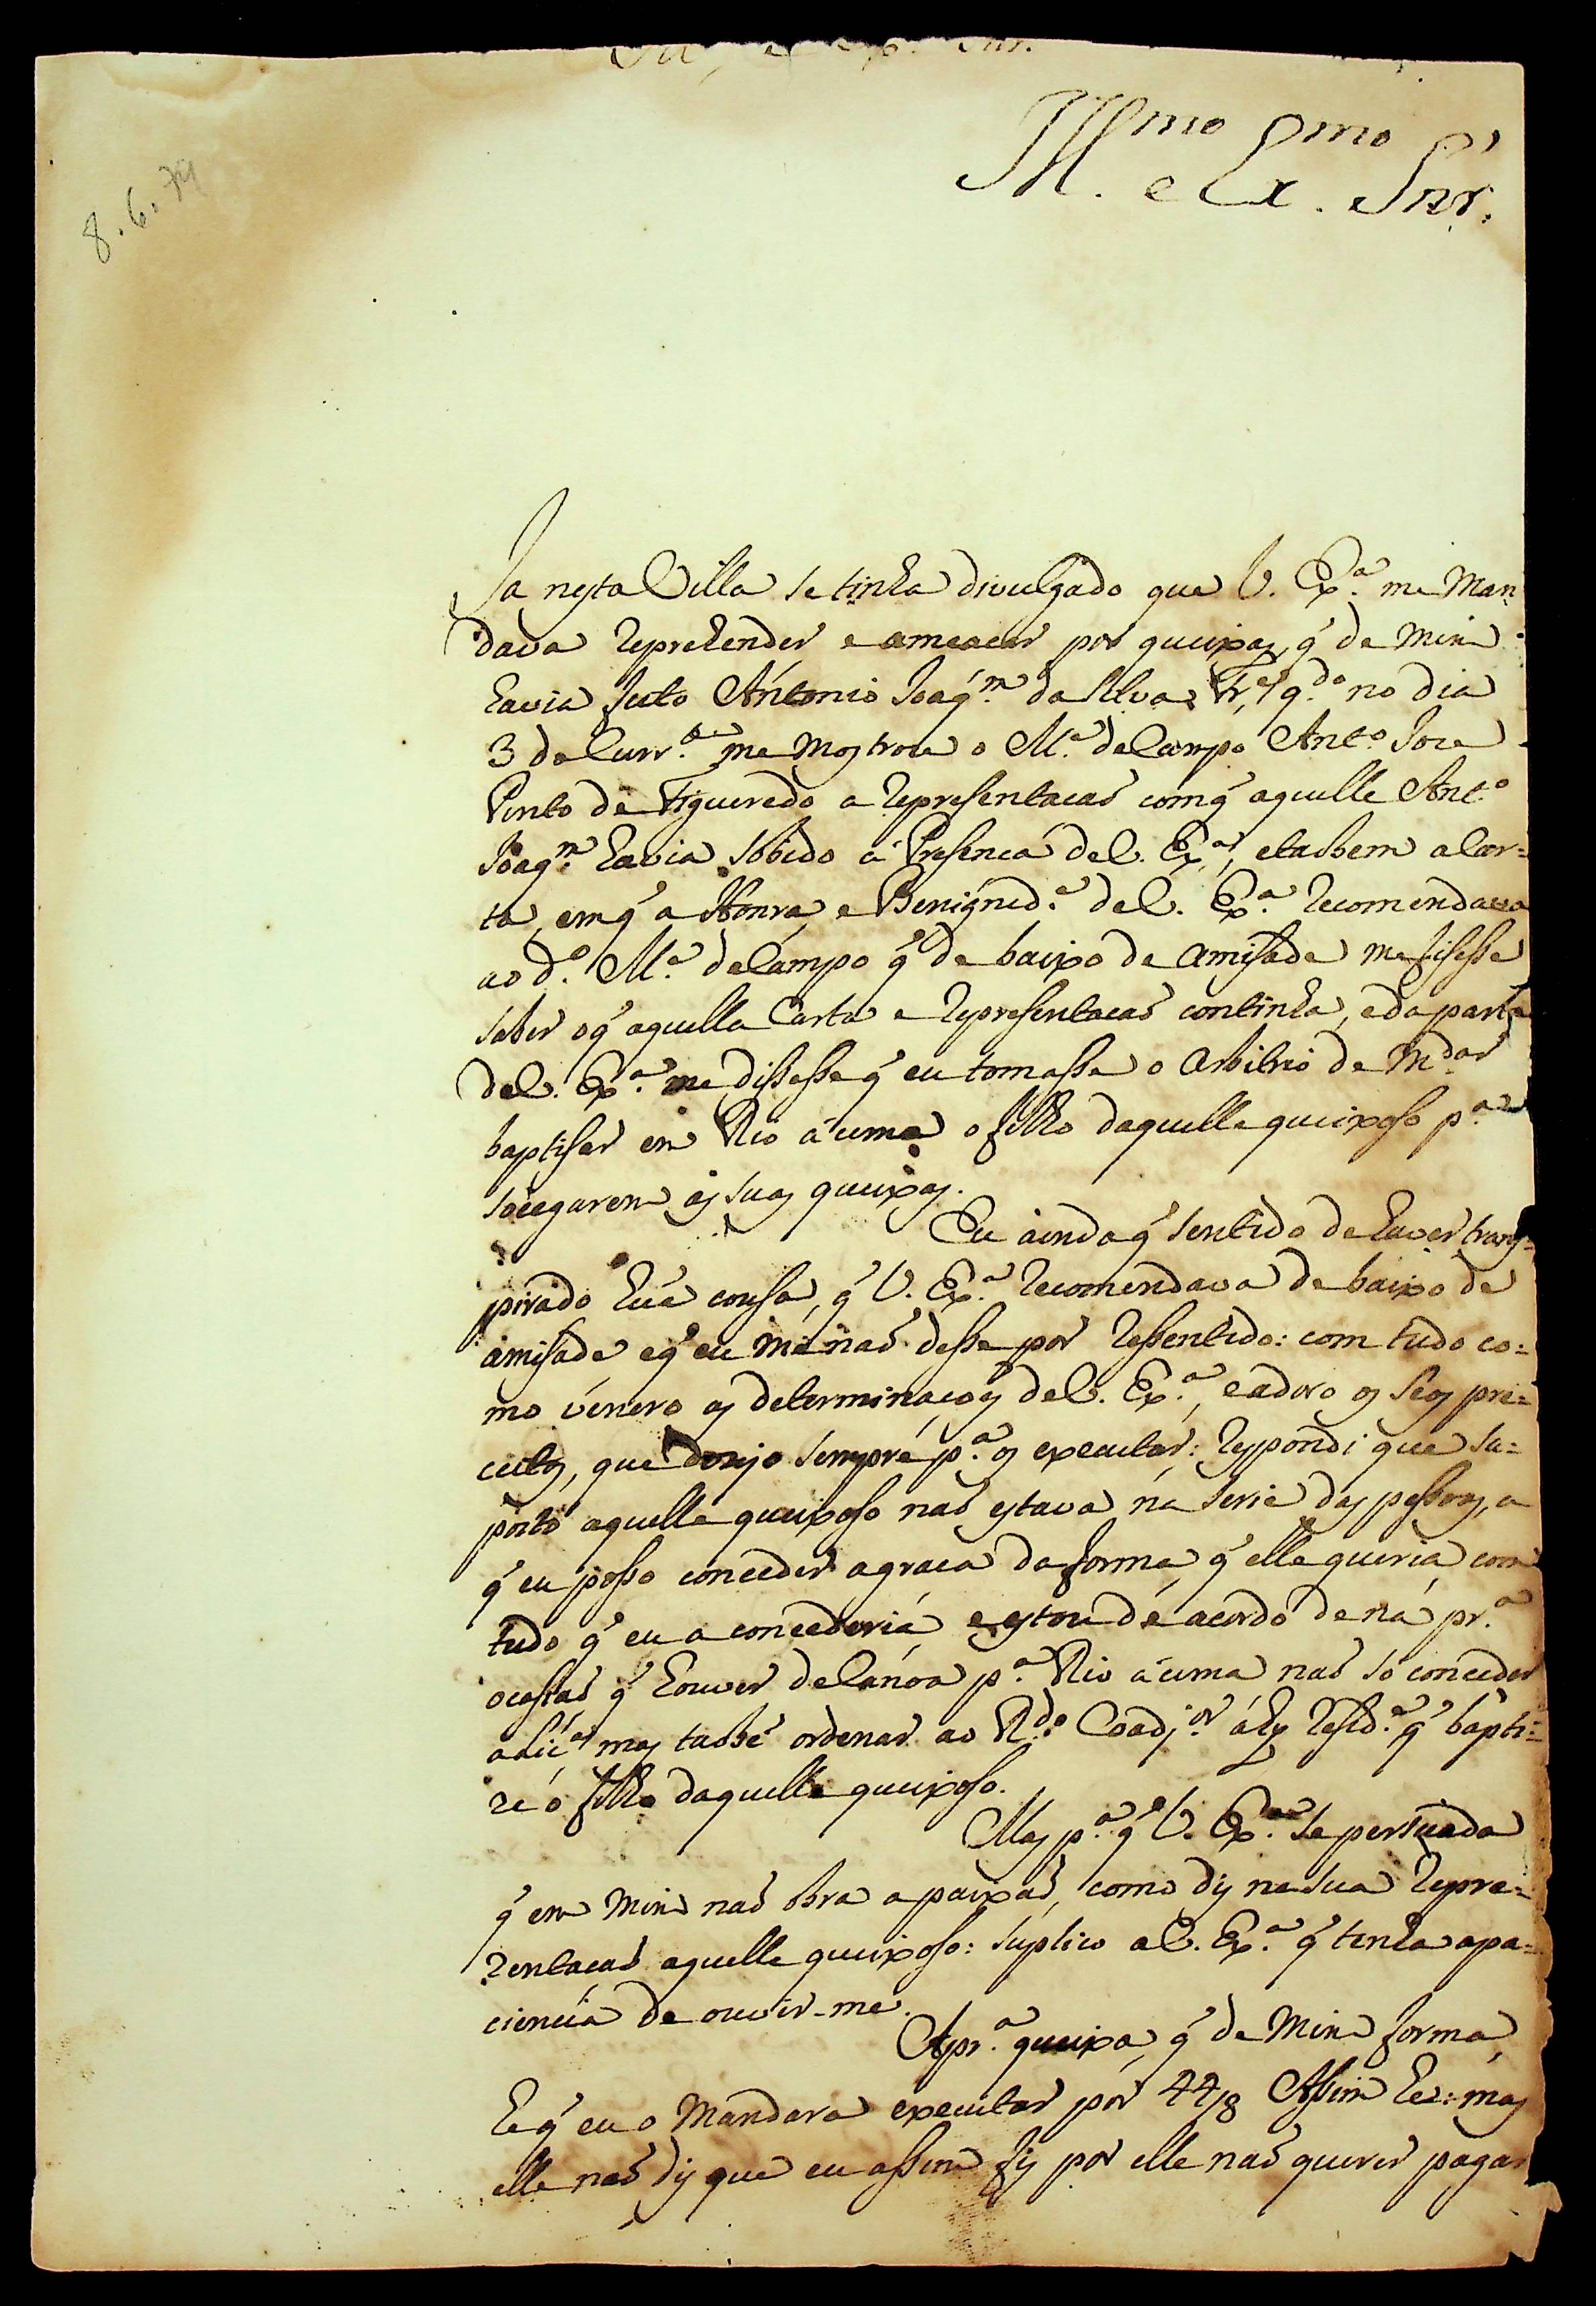 8.6.79
Ill.mo e Ex.mo Snr.
Ja nesta Villa se tinha divulgado que V. Ex.a me Man
dava reprehender e ameacar por queixas, q̃ de Mim
havia feito António Joaq.m da Silva Fr.e, q.do no dia
3 do Curr.te me mostrou o M.e de Campo Ant.o Joze
Pinto de Figueredo a representacaõ com q̃ aquelle Ant.o
Joaq.m havia sobido á Presenca de V. Ex.a, e taobem a Car=
ta, em q̃ a Honra, e Benignid.e de V. Ex.a recomendava
ao d.o M.e de Campo q̃ de baixo de amisade me fisesse
saber o q̃ aquella Carta e representacaõ continha, e da parte
de V. Ex.a me dissesse q̃ eu tomasse o arbitrio de M.dar
baptisar em Rio ácima o filho daquelle queixoso p.a
socegarem as suas queixas.
Eu ainda q̃ sentido de haver trans=
pirado huã cousa, q̃ V. Ex.a recomendava de baixo de
amisade e q̃ eu me naõ desse por ressentido: com tudo co=
mo vénero as determinaçoẽs de V. Ex.a, e adoro os seos pre=
ceitos, que dezejo sempre p.a os executar: respondi que su=
posto aquelle queixoso naõ estava na serie das pessoas, a
q̃ eu posso conceder a graca da forma q̃ elle queria, com
tudo q̃ eu a concederiá, e estou de acordo de ná pr.a
ocasiaõ q̃ houver de Canoa p.a Rio ácima naõ só conceder
a lic.a mas taobẽ ordenar ao R.do Coadj.or ály resid.e q̃ bapti=
ze o filho daquelle queixoso.
Mas p.a q̃ V. Ex.a se persuada
q̃ em Mim naõ obra a paixaõ, como dis na sua repre=
zentacaõ aquelle queixoso: suplico a V. Ex.a q̃ tenha a pa=
ciencia de ouvir-me.
A pr.a queixa, q̃ de Mim forma,
he q̃ eu o Mandara executar por 44/8 Assim he: mas
elle naõ dis que eu assim fis por elle naõ querer pagar